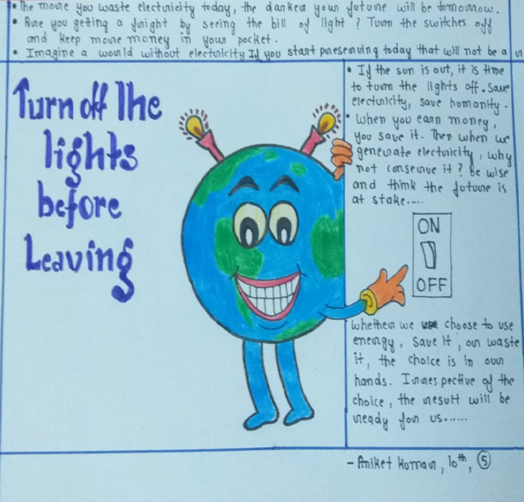 • The more you waste electricity today, the darker your future will be tomorrow.
• Are you getting a fright by seeing the bill of light? Turn the switches off
and keep more money in your pocket.
• Imagine a world without electricity If you start preserving today that will not be a
Turn off The
lights
before
Leaving
• If the sun is out, it is time
to turn the lights off. Save
electricity, save humanity.
• When you earn money,
you save it. Then when we
generate electricity, why
not conserve it? Be wise
and think the future is
at stake....
ON
OFF
Whether we choose to use
energy, save it, or waste
it, the choice is in our
hands. Irrespective of the
choice, the result will be
ready for us......
- Aniket Kumar, 10th, 5